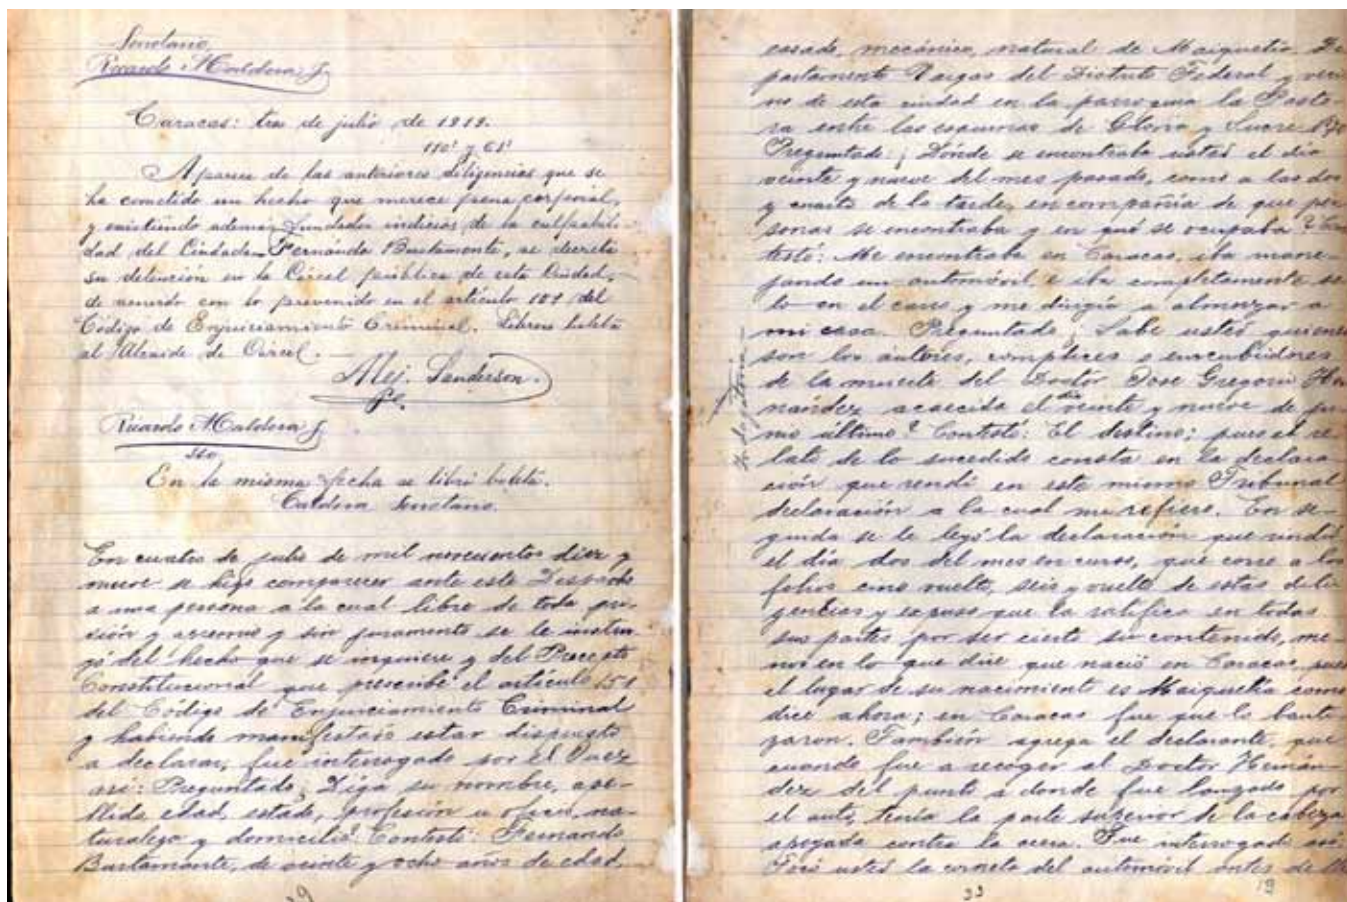 Secretario,
Ricardo Maldonado J.
Caracas: tres de julio de 1919.
110º y 61º
Aparece de las anteriores diligencias que se
ha cometido un hecho que merece pena corporal,
y existiendo además fundados indicios de la culpabili-
dad del Ciudadano Fernando Bustamante, se decreta
su detención en la Cárcel pública de esta Ciudad,
de acuerdo con lo prevenido en el artículo 109 del
Código de Enjuiciamiento Criminal. Líbrese boleta
al Alcaide de Cárcel.
Alej. Sanderson.
Ricardo
En la misma fecha se libró boleta.
Secretario.
En cuatro de julio de mil novecientos diez y
nueve se hizo comparecer ante este Despacho
a una persona a la cual libre de toda pri-
sión y apremio y sin juramento se le instru-
yó del hecho que se inquiere y del Precepto
Constitucional que prescribe el artículo 151
del Código de Enjuiciamiento Criminal
y habiendo manifestado estar dispuesto
a declarar, fue interrogado por el Juez
así: Preguntado: Diga su nombre, ape-
llido, edad, estado, profesión u oficio, na-
turaleza y domicilio? Contestó: Fernando
Bustamante, de veinte y ocho años de edad,
casado, mecánico, natural de Maiquetía, De
partamento Vargas del Distrito Federal y veci
no de esta ciudad en la parroquia la Pasto-
ra entre las esquinas de Gloria y Sucre
Preguntado: ¿Dónde se encontraba usted el día
veinte y nueve del mes pasado, como a las dos
y cuarto de la tarde, en compañía de que per
sonas se encontraba y en qué se ocupaba? Con
testó: Me encontraba en Caracas, iba mane-
jando un automóvil, e iba completamente so-
lo en el carro y me dirigía a almorzar a
mi casa. Preguntado: ¿Sabe usted quienes
son los autores, complices o encubridores
de la muerte del Doctor José Gregorio Her
nández acaecida el día veinte y nueve de ju
nio último? Contestó: El destino; pues el re
lato de lo sucedido consta en la declara
ción que rendí en este mismo Tribunal
declaración a la cual me refiero. En se-
guida se le leyó la declaración que rindió
el día dos del mes en curso, que corre a los
folios cinco vuelto, seis y vuelto de estas dili
gencias y expuso que la ratifica en todas
sus partes por ser cierto su contenido, me-
nos en lo que dice que nació en Caracas, pues
el lugar de su nacimiento es Maiquetía como
dice ahora; en Caracas fue que lo bauti
zaron. También agrega el declarante, que
cuando fue a recoger al Doctor Hernán-
dez del punto a donde fue lanzado por
el auto, tenía la parte superior de la cabeza
apegada contra la acera. Fue interrogado así:
Tocó usted la corneta del automóvil antes de
19